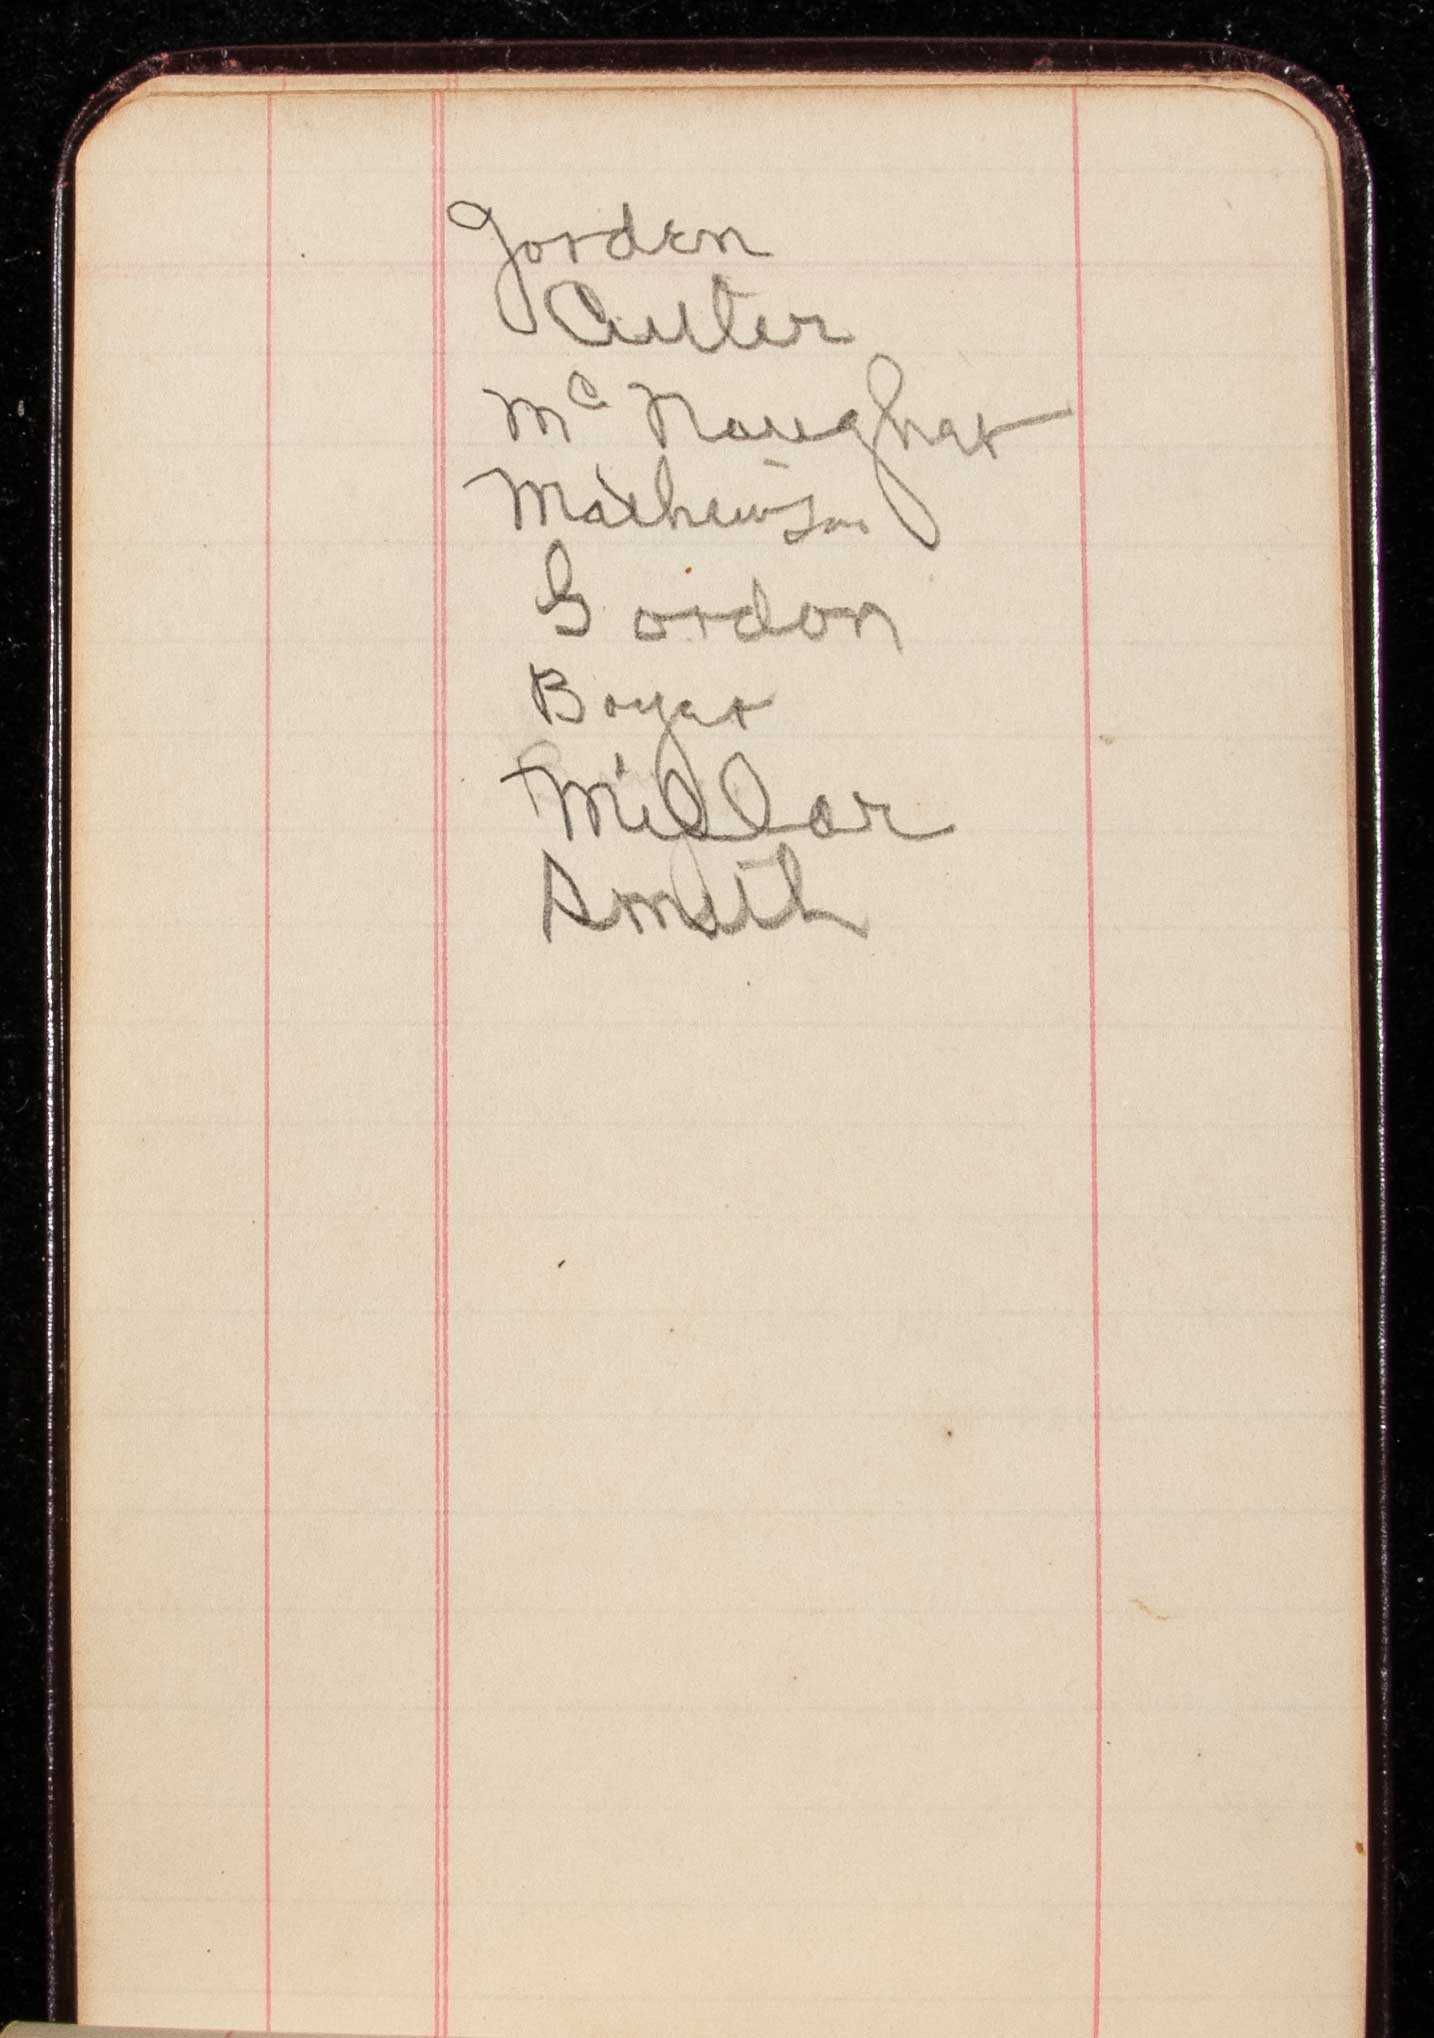 Jorden
Cuter
Mc Naughar
Mathewson
Gordon
Boyer
Millar
Smith